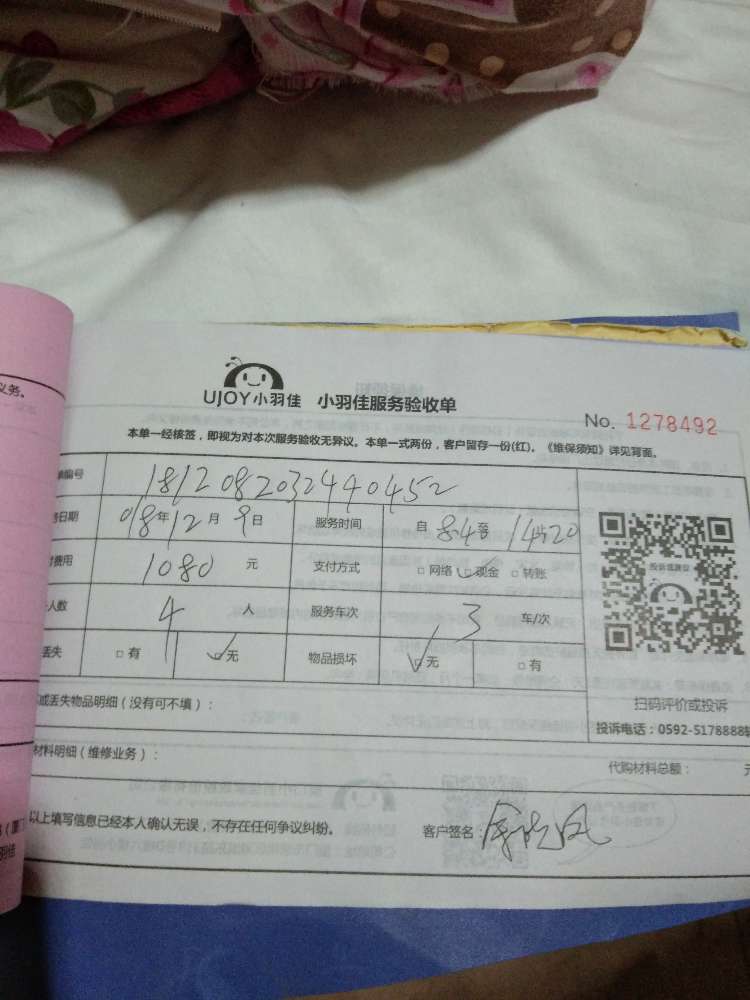 义务。
UJOY小羽佳 小羽佳服务验收单
No. 1278492
本单一经核签，即视为对本次服务验收无异议。本单一式两份，客户留存一份(红)。《维保须知》详见背面。
单编号 181208203244 0452
日期 018年12月9日 服务时间 自 8:4 至 14:20
费用 1080 元 支付方式 □网络 □现金 □转账
人数 4 人 服务车次 3 车/次
丢失 □有 □无 物品损坏 □无 □有
或丢失物品明细（没有可不填）：
扫码评价或投诉
投诉电话：0592-5178888
材料明细（维修业务）：
代购材料总额： 元
以上填写信息已经本人确认无误，不存在任何争议纠纷。
客户签名：